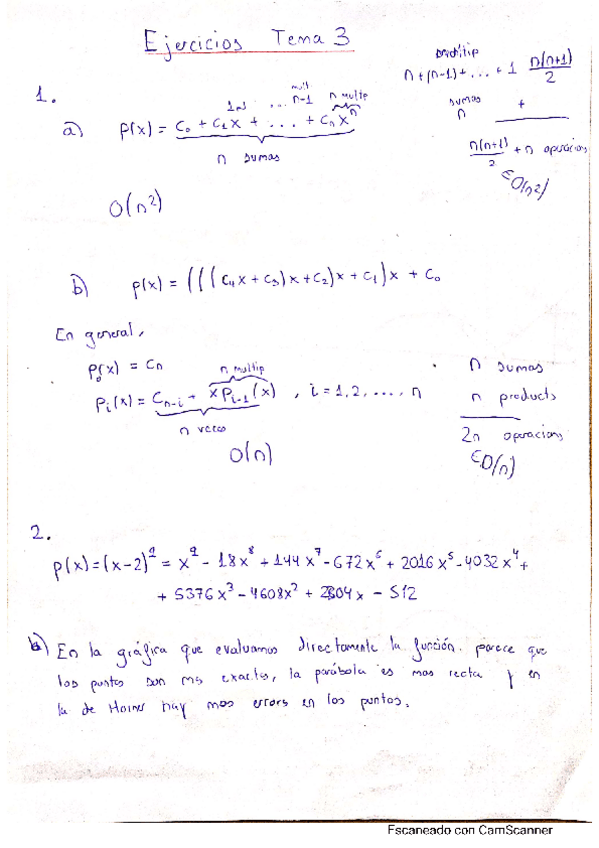 Ejercicios Tema 3
multip
n+(n-1)+...+1 n(n+1)/2
sumas
n +
n(n+1)/2 + n operacions
∈O(n²)
1.
a) p(x) = c₀ + c₁x + ... + cₙxⁿ
mult
n-1 n multip
n sumas
O(n²)
b) p(x) = (((c₄x + c₃)x + c₂)x + c₁)x + c₀
En general,
p₀(x) = cₙ
n multip
pᵢ(x) = cₙ₋ᵢ + xpᵢ₋₁(x), i = 1,2,...,n
n veces
O(n)
n sumas
n products
2n operacions
∈O(n)
2.
p(x) = (x-2)⁹ = x⁹ - 18x⁸ + 144x⁷ - 672x⁶ + 2016x⁵ - 4032x⁴ +
+ 5376x³ - 4608x² + 2304x - 512
b) En la gráfica que evaluamos directamente la función parece que
los puntos son ms exactos, la parábola es mas recta y en
la de Horner hay mas errors en los puntos.
Escaneado con CamScanner